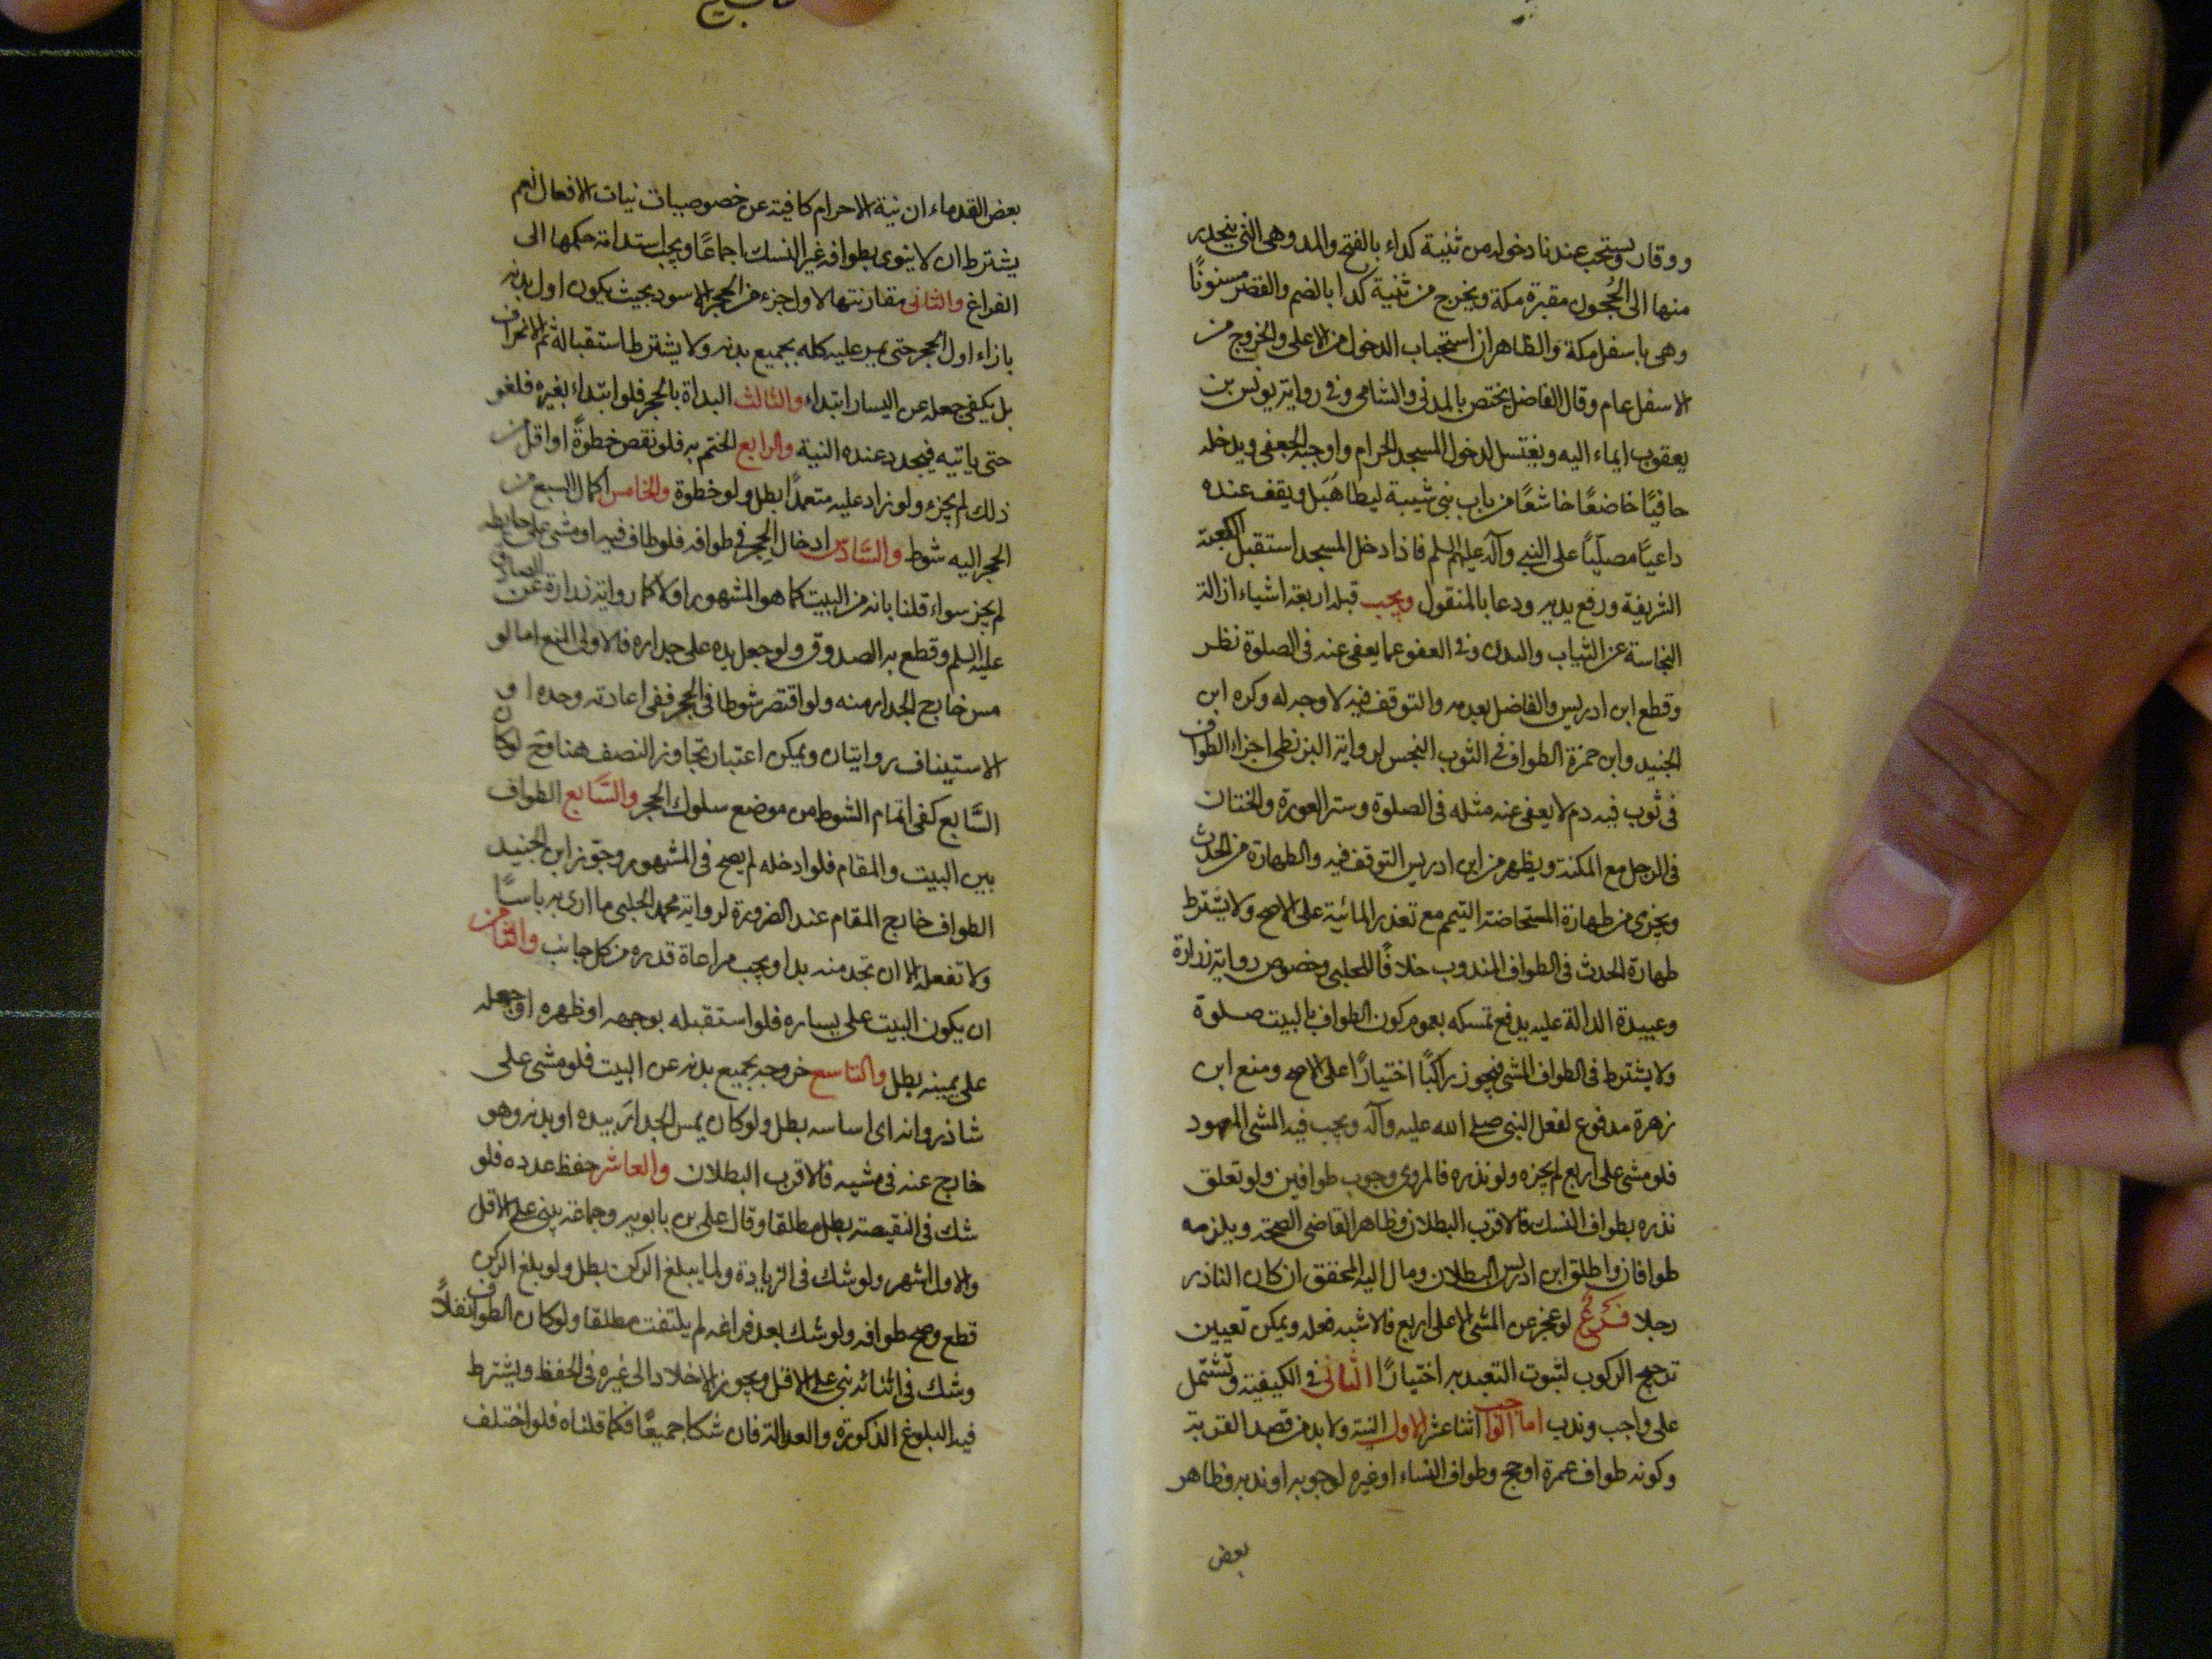 ووقار ويستحب عندنا دخوله من ثنية كداء بالفتح والمد وهي التي ينحدر
منها الى الحُجون مقبرة مكة ويخرج من ثنية كدا بالضم والقصر مسنونًا
وهى باسفل مكة والظاهر ان استحباب الدخول من الاعلى والخروج من
الاسفل عام وقال الفاضل يختص بالمدنى والشامى وفى رواية يونس بن
يعقوب ايماء اليه ويغتسل لدخول المسجد الحرام واوجبه الجعفى ويدخله
حافيًا خاضعًا خاشعًا من باب بنى شيبة ليطا هبل ويقف عنده
داعيًا مصليًا على النبي وآله عليهم السلم فاذا دخل المسجد استقبل الكعبة
الشريفة ورفع يديه ودعا بالمنقول ويجب قبله اربعة اشياء ازالة
النجاسة عن الثياب والبدن وفى العفو عما يعفى عنه فى الصلوة نظر
وقطع ابن ادريس والفاضل بعدمه والتوقف فيه لا وجه له وكره ابن
الجنيد وابن حمزة الطواف فى الثوب النجس لرواية البزنطى اجزاء الطواف
فى ثوب فيه دم لا يعفى عنه مثله فى الصلوة وستر العورة والختان
فى الرجل مع المكنة ويظهر من ابن ادريس التوقف فيه والطهارة من الحدث
ويجزى من طهارة المستحاضة التيمم مع تعذر المائية على الاصح ولا يشترط
طهارة الحدث فى الطواف المندوب خلافًا للحلبى وخصوص رواية زرارة
وعبيدة الدالة عليه يدفع تمسكه بعموم كون الطواف بالبيت صلوة
ولا يشترط فى الطواف المشى فيجوز راكبًا اختيارًا على الاصح ومنع ابن
زهرة مدفوع لفعل النبى صلى الله عليه وآله ويجب فيه المشى المعهود
فلو مشى على اربع لم يجزه ولو نذره فالمروى وجوب طوافين ولو تعلق
نذره بطواف النسك فالاقرب البطلان وظاهر القاضى الصحة ويلزمه
طوافان واطلق ابن ادريس البطلان ومال اليه المحقق ان كان الناذر
رجلا فرع لو عجز عن المشى الا على اربع فالاشبه فعله ويمكن تعيين
ترجيح الركوب لثبوت التعبد به اختيارًا الثانى فى الكيفية وتشتمل
على واجب وندب اما الواجب اثنا عشر الاول النية ولا بد من قصد القربة
وكونه طواف عمرة او حج وطواف النساء او غيره لوجوبه او ندبه وظاهر
بعض
بعض القدماء ان نية الاحرام كافية عن خصوصيات نيات الافعال نعم
يشترط ان لا ينوى بطوافه غير النسك اجماعًا ويجب استدامة حكمها الى
الفراغ والثانى مقارنتها لاول جزء من الحجر الاسود بحيث يكون اول بدنه
بازاء اول الحجر حتى يمر عليه كله بجميع بدنه ولا يشترط استقباله ثم الانحراف
بل يكفى جعله عن اليسار ابتداء والثالث البداة بالحجر فلو ابتداء بغيره فلغو
حتى ياتيه فيجدد عنده النية والرابع الختم به فلو نقص خطوةً او اقل من
ذلك لم يجزء ولو زاد عليه متعمدًا بطل ولو خطوة والخامس اكمال السبع من
الحجر اليه شوط والسَّادس ادخال الحِجر فى طوافه فلو طاف فيه او مشى على حايطه
لم يجز سواء قلنا بانه من البيت كما هو المشهور او لا كما رواية زرارة عن الصادق
عليه السلم وقطع به الصدوق ولو جعل يده على جداره فالاولى المنع اما لو
مس خارج الجدار منه ولو اقتصر شوطا فى الحجر ففى اعادته وحده او
الاستيناف روايتان ويمكن اعتبار تجاوز النصف هنا وح لو كان
السَّابع كفى اتمام الشوط من موضع سلوك الحجر والسَّابع الطواف
بين البيت والمقام فلو ادخله لم يصح فى المشهور وجوّز ابن الجنيد
الطواف خارج المقام عند الضرورة لرواية محمد الحلبى ما ارى به باسًا
ولا تفعله الا ان تجد منه بدا ويجب مراعاة قدره من كل جانب والثامن
ان يكون البيت على يساره فلو استقبله بوجهه او ظهره او جعله
على يمينه بطل والتاسع خروجه بجميع بدنه عن البيت فلو مشى على
شاذروانه اى اساسه بطل ولو كان يمس الجدار بيده او بدنه وهو
خارج عنه فى مشيه فالاقرب البطلان والعاشر حفظ عدده فلو
شك فى النقيصة بطل مطلقا وقال على بن بابويه وجماعة يبنى على الاقل
والاول اشهر ولو شك فى الزيادة ولما يبلغ الركن بطل ولو بلغ الركن
قطع وصح طوافه ولو شك بعد فراغه لم يلتفت مطلقا ولو كان الطواف نفلًا
وشك فى اثنائه بنى على الاقل ويجوز الاخلاد الى غيره فى الحفظ ويشترط
فيه البلوغ الذكورة والعدالة فان شكا جميعًا فكما قلناه فلو اختلف